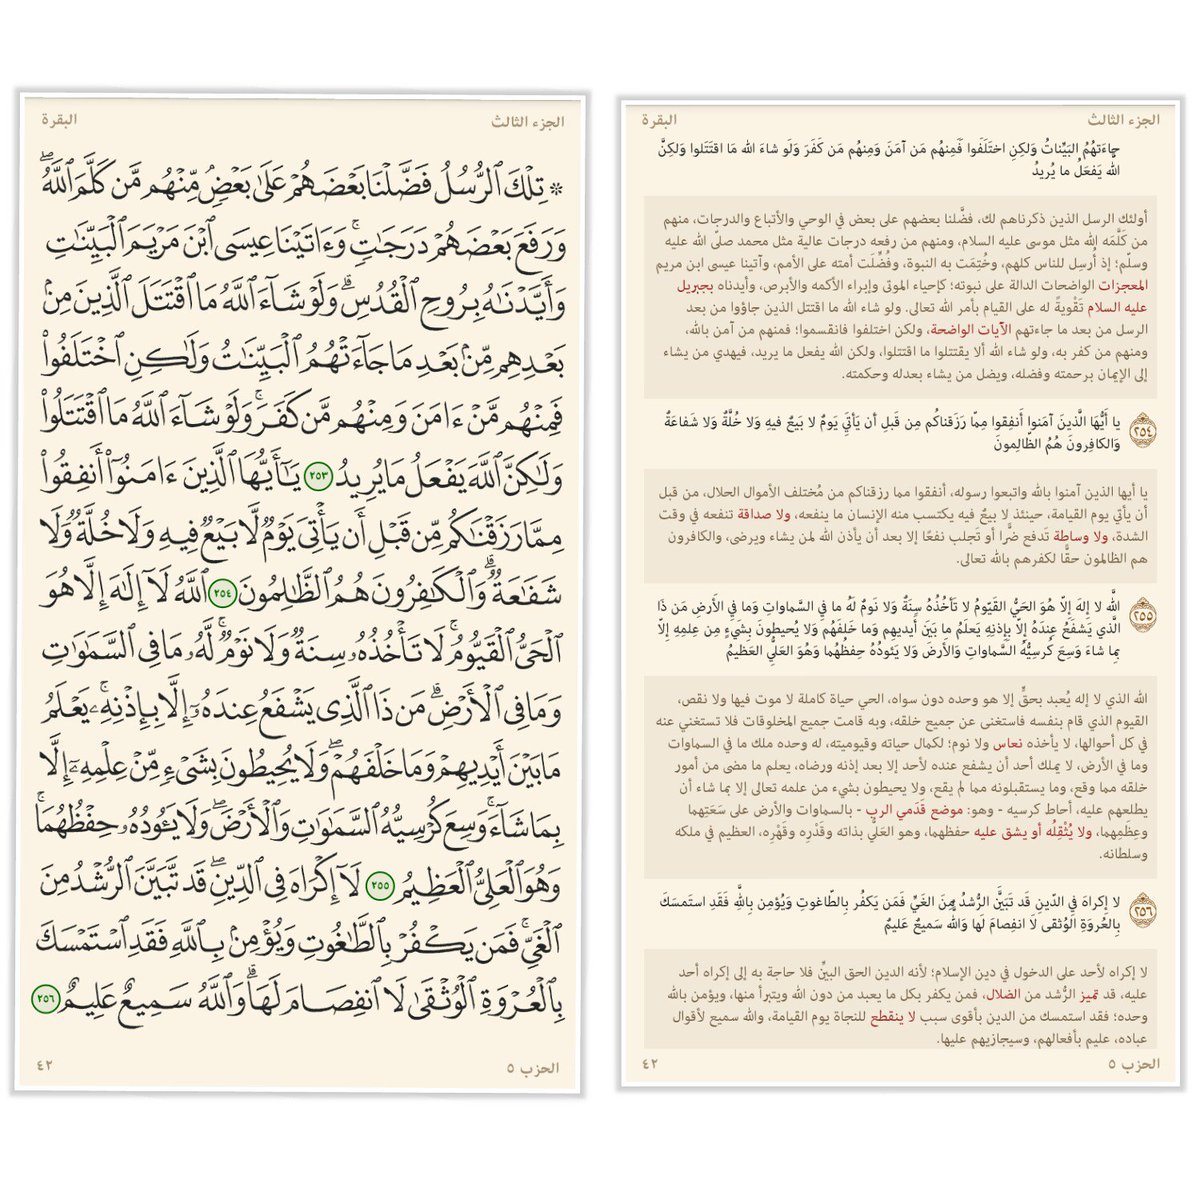 الجزء الثالث
البقرة
۞ تِلْكَ ٱلرُّسُلُ فَضَّلْنَا بَعْضَهُمْ عَلَىٰ بَعْضٍ مِّنْهُم مَّن كَلَّمَ ٱللَّهُ ۖ
وَرَفَعَ بَعْضَهُمْ دَرَجَٰتٍ ۚ وَءَاتَيْنَا عِيسَى ٱبْنَ مَرْيَمَ ٱلْبَيِّنَٰتِ
وَأَيَّدْنَٰهُ بِرُوحِ ٱلْقُدُسِ ۗ وَلَوْ شَآءَ ٱللَّهُ مَا ٱقْتَتَلَ ٱلَّذِينَ مِنۢ
بَعْدِهِم مِّنۢ بَعْدِ مَا جَآءَتْهُمُ ٱلْبَيِّنَٰتُ وَلَٰكِنِ ٱخْتَلَفُوا۟
فَمِنْهُم مَّنْ ءَامَنَ وَمِنْهُم مَّن كَفَرَ ۚ وَلَوْ شَآءَ ٱللَّهُ مَا ٱقْتَتَلُوا۟
وَلَٰكِنَّ ٱللَّهَ يَفْعَلُ مَا يُرِيدُ ٢٥٣ يَٰٓأَيُّهَا ٱلَّذِينَ ءَامَنُوٓا۟ أَنفِقُوا۟
مِمَّا رَزَقْنَٰكُم مِّن قَبْلِ أَن يَأْتِىَ يَوْمٌ لَّا بَيْعٌ فِيهِ وَلَا خُلَّةٌ وَلَا
شَفَٰعَةٌ ۗ وَٱلْكَٰفِرُونَ هُمُ ٱلظَّٰلِمُونَ ٢٥٤ ٱللَّهُ لَآ إِلَٰهَ إِلَّا هُوَ
ٱلْحَىُّ ٱلْقَيُّومُ ۚ لَا تَأْخُذُهُۥ سِنَةٌ وَلَا نَوْمٌ ۚ لَّهُۥ مَا فِى ٱلسَّمَٰوَٰتِ
وَمَا فِى ٱلْأَرْضِ ۗ مَن ذَا ٱلَّذِى يَشْفَعُ عِندَهُۥٓ إِلَّا بِإِذْنِهِۦ ۚ يَعْلَمُ
مَا بَيْنَ أَيْدِيهِمْ وَمَا خَلْفَهُمْ ۖ وَلَا يُحِيطُونَ بِشَىْءٍ مِّنْ عِلْمِهِۦٓ إِلَّا
بِمَا شَآءَ ۚ وَسِعَ كُرْسِيُّهُ ٱلسَّمَٰوَٰتِ وَٱلْأَرْضَ ۖ وَلَا يَـُٔودُهُۥ حِفْظُهُمَا ۚ
وَهُوَ ٱلْعَلِىُّ ٱلْعَظِيمُ ٢٥٥ لَآ إِكْرَاهَ فِى ٱلدِّينِ ۖ قَد تَّبَيَّنَ ٱلرُّشْدُ مِنَ
ٱلْغَىِّ ۚ فَمَن يَكْفُرْ بِٱلطَّٰغُوتِ وَيُؤْمِنۢ بِٱللَّهِ فَقَدِ ٱسْتَمْسَكَ
بِٱلْعُرْوَةِ ٱلْوُثْقَىٰ لَا ٱنفِصَامَ لَهَا ۗ وَٱللَّهُ سَمِيعٌ عَلِيمٌ ٢٥٦
الحزب ٥
٤٢
الجزء الثالث
البقرة
جاءَتهُمُ البَيِّناتُ وَلكِنِ اختَلَفوا فَمِنهُم مَن آمَنَ وَمِنهُم مَن كَفَرَ وَلَو شاءَ اللَّه مَا اقتَتَلوا وَلكِنَّ
اللَّهَ يَفعَلُ ما يُريدُ
أولئك الرسل الذين ذكرناهم لك، فضَّلنا بعضهم على بعض في الوحي والأتباع والدرجات، منهم
من كَلَّمَه الله مثل موسى عليه السلام، ومنهم من رفعه درجات عالية مثل محمد صلى الله عليه
وسلّم؛ إذ أُرسِل للناس كلهم، وخُتِمَت به النبوة، وفُضِّلَت أمته على الأمم، وآتينا عيسى ابن مريم
المعجزات الواضحات الدالة على نبوته؛ كإحياء الموتى وإبراء الأكمه والأبرص، وأيدناه بجبريل
عليه السلام تَقْويةً له على القيام بأمر الله تعالى. ولو شاء الله ما اقتتل الذين جاؤوا من بعد
الرسل من بعد ما جاءتهم الآيات الواضحة، ولكن اختلفوا فانقسموا؛ فمنهم من آمن بالله،
ومنهم من كفر به، ولو شاء الله ألا يقتتلوا ما اقتتلوا، ولكن الله يفعل ما يريد، فيهدي من يشاء
إلى الإيمان برحمته وفضله، ويضل من يشاء بعدله وحكمته.
٢٥٤ يا أَيُّهَا الَّذينَ آمَنوا أَنفِقوا مِمّا رَزَقناكُم مِن قَبلِ أَن يَأتِيَ يَومٌ لا بَيعٌ فيهِ وَلا خُلَّةٌ وَلا شَفاعَةٌ
وَالكافِرونَ هُمُ الظّالِمونَ
يا أيها الذين آمنوا بالله واتبعوا رسوله، أنفقوا مما رزقناكم من مُختلف الأموال الحلال، من قبل
أن يأتي يوم القيامة، حينئذ لا بيعٌ فيه يكتسب منه الإنسان ما ينفعه، ولا صداقة تنفعه في وقت
الشدة، ولا وساطة تَدفع ضرًّا أو تَجلب نفعًا إلا بعد أن يأذن الله لمن يشاء ويرضى، والكافرون
هم الظالمون حقًّا لكفرهم بالله تعالى.
٢٥٥ اللَّه لا إِلهَ إِلّا هُوَ الحَيُّ القَيّومُ لا تَأخُذُهُ سِنَةٌ وَلا نَومٌ لَهُ ما فِي السَّماواتِ وَما فِي الأَرضِ مَن ذَا
الَّذي يَشفَعُ عِندَهُ إِلّا بِإِذنِهِ يَعلَمُ ما بَينَ أَيديهِم وَما خَلفَهُم وَلا يُحيطونَ بِشَيءٍ مِن عِلمِهِ إِلّا
بِما شاءَ وَسِعَ كُرسِيُّهُ السَّماواتِ وَالأَرضَ وَلا يَئودُهُ حِفظُهُما وَهُوَ العَلِيُّ العَظيمُ
الله الذي لا إله يُعبد بحقٍّ إلا هو وحده دون سواه، الحي حياة كاملة لا موت فيها ولا نقص،
القيوم الذي قام بنفسه فاستغنى عن جميع خلقه، وبه قامت جميع المخلوقات فلا تستغني عنه
في كل أحوالها، لا يأخذه نعاس ولا نوم؛ لكمال حياته وقيوميته، له وحده ملك ما في السماوات
وما في الأرض، لا يملك أحد أن يشفع عنده لأحد إلا بعد إذنه ورضاه، يعلم ما مضى من أمور
خلقه مما وقع، وما يستقبلونه مما لم يقع، ولا يحيطون بشيء من علمه تعالى إلا بما شاء أن
يطلعهم عليه، أحاط كرسيه - وهو: موضع قَدَمي الرب - بالسماوات والأرض على سَعَتِهما
وعِظَمِهما، ولا يُثْقِلُه أو يشق عليه حفظهما، وهو العَليُّ بذاته وقَدْرِه وقَهْرِه، العظيم في ملكه
وسلطانه.
٢٥٦ لا إِكراهَ فِي الدّينِ قَد تَبَيَّنَ الرُّشدُ مِنَ الغَيِّ فَمَن يَكفُر بِالطّاغوتِ وَيُؤمِن بِاللَّهِ فَقَدِ استَمسَكَ
بِالعُروَةِ الوُثقى لَا انفِصامَ لَها وَاللَّه سَميعٌ عَليمٌ
لا إكراه لأحد على الدخول في دين الإسلام؛ لأنه الدين الحق البيِّن فلا حاجة به إلى إكراه أحد
عليه، قد تميز الرُّشد من الضلال، فمن يكفر بكل ما يعبد من دون الله ويتبرأ منها، ويؤمن بالله
وحده؛ فقد استمسك من الدين بأقوى سبب لا ينقطع للنجاة يوم القيامة، والله سميع لأقوال
عباده، عليم بأفعالهم، وسيجازيهم عليها.
الحزب ٥
٤٢